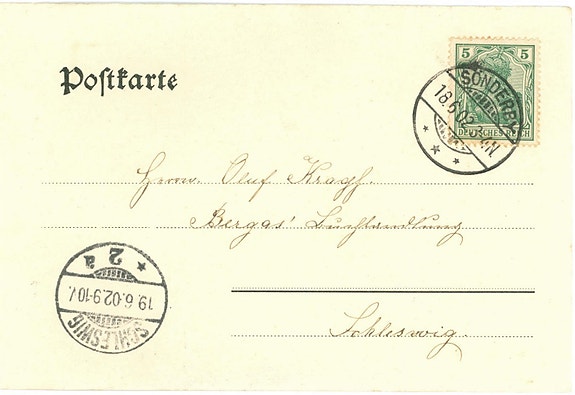 Postkarte
5 5
DEUTSCHES REICH
SONDERBURG
18.6.02.3-4N.
Herrn Oluf Kragh.
Bergas' Buchhandlung
Schleswig.
SCHLESWIG
19.6.02.9-10V.
* 2 a